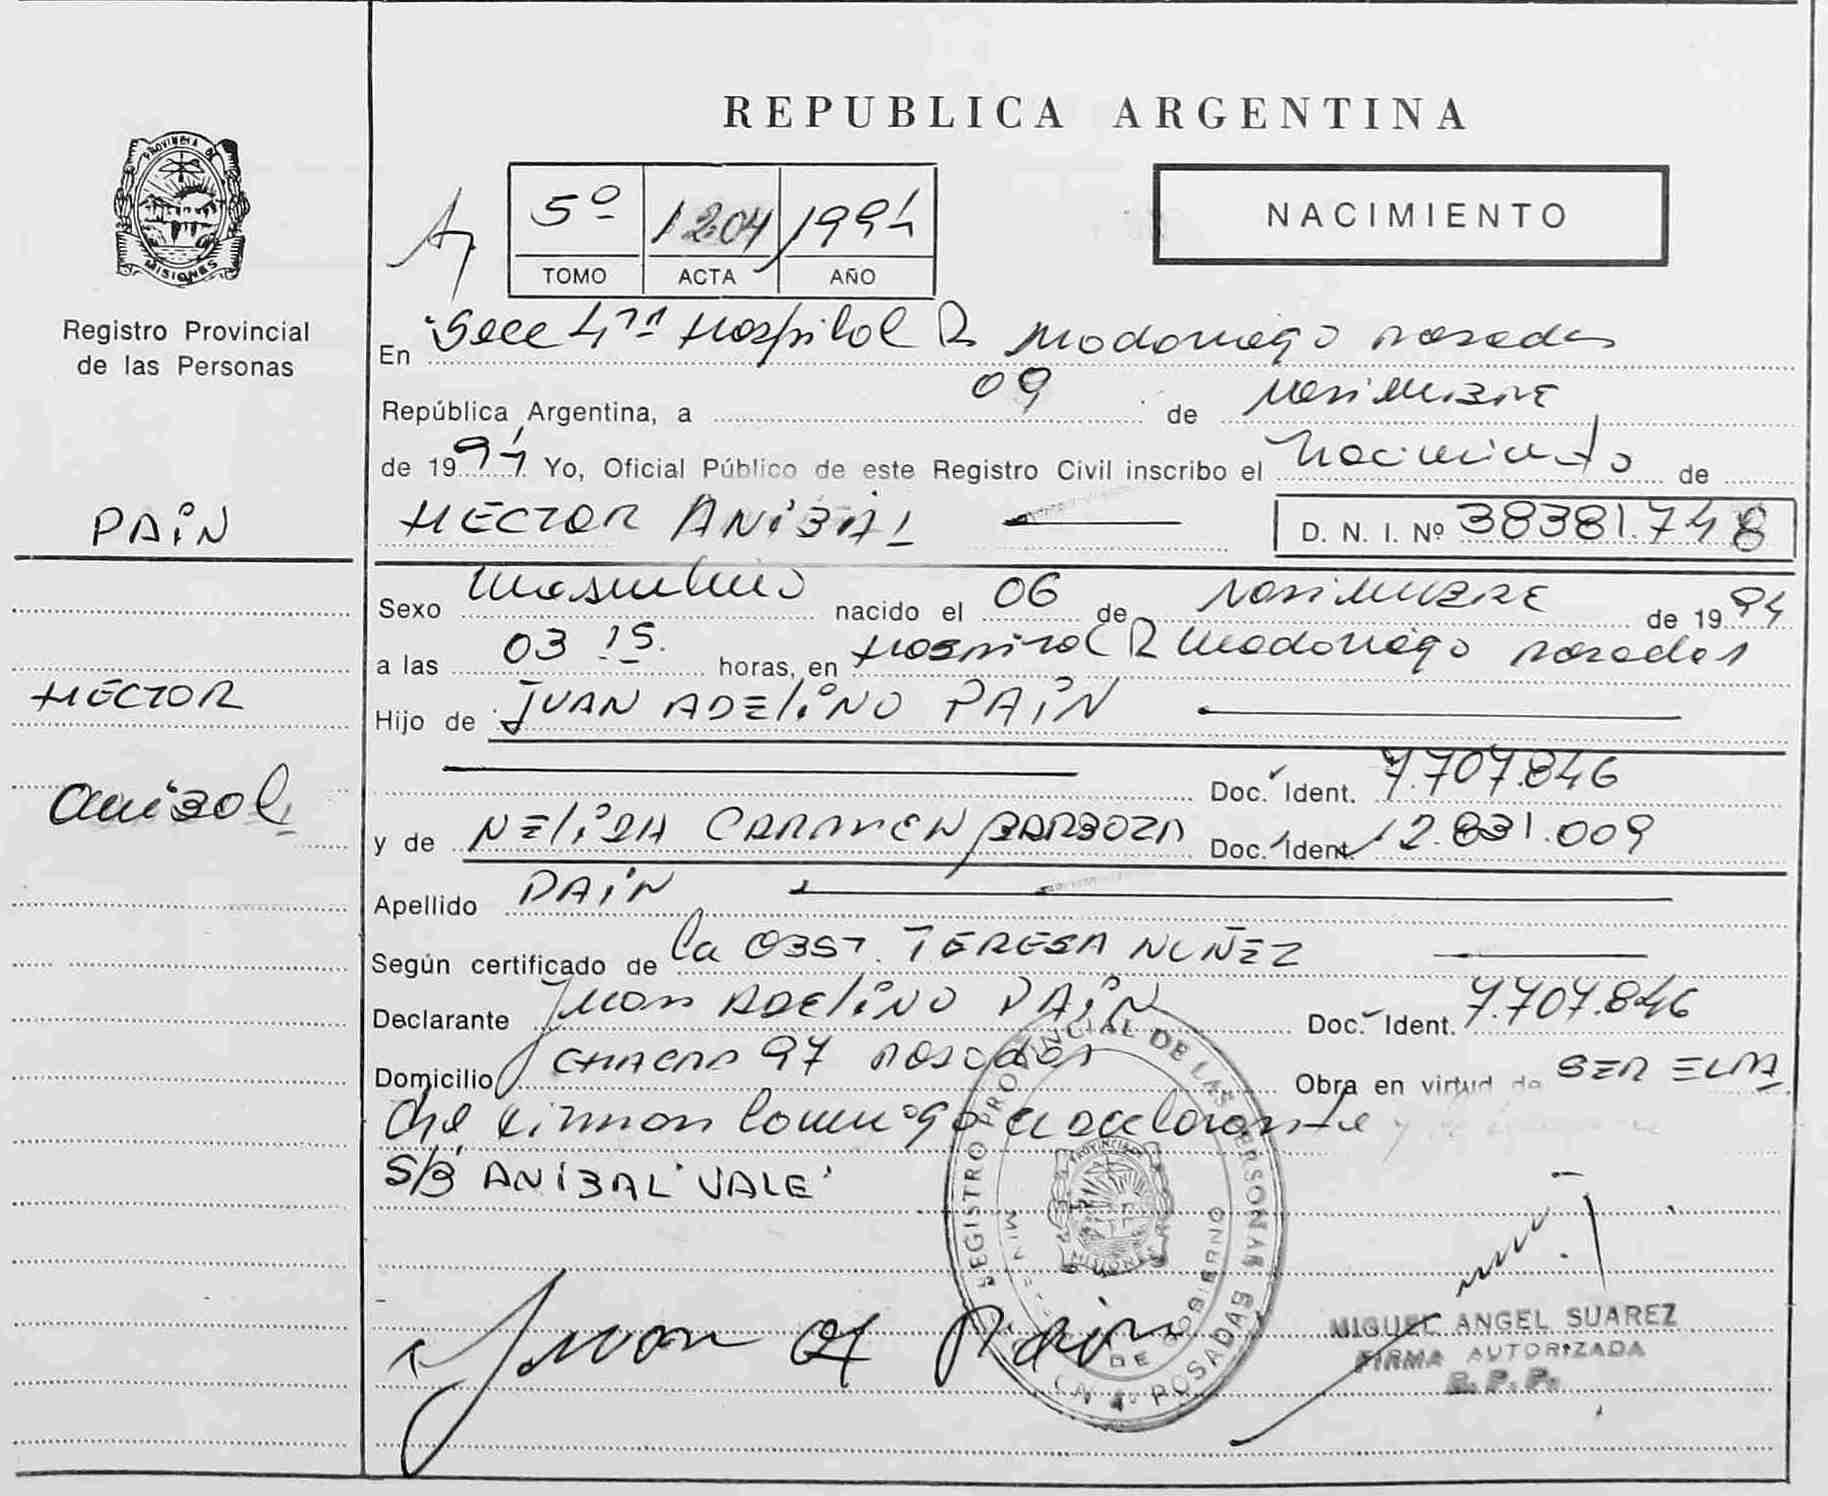 REPUBLICA ARGENTINA
PROVINCIA DE
MISIONES
Registro Provincial
de las Personas
5º 1204 1994
TOMO ACTA AÑO
NACIMIENTO
En Secc 4ta Hospital R Madariaga Posadas
República Argentina, a 09 de Noviembre
de 1994 Yo, Oficial Público de este Registro Civil inscribo el nacimiento de
HECTOR ANIBAL D. N. I. Nº 38381.748
PAiN
Sexo masculino nacido el 06 de NOViEMBRE de 1994
a las 03 15. horas, en Hospital R Madariaga Posadas
HECTOR
Hijo de JUAN ADELiNO PAiN
Doc. Ident. 7.707.846
Anibal
y de NELiDA CARMEN BARBOZA Doc. Ident. 12.831.009
Apellido PAiN
Según certificado de la OBST. TERESA NUÑEZ
Declarante Juan ADELiNO PAiN Doc. Ident. 7.707.846
Domicilio CHACRA 97 Posadas Obra en virtud de SER EL PA
dre firman conmigo el declarante
S/B ANIBAL VALE
REGISTRO PROVINCIAL DE LAS PERSONAS
DE GOBIERNO
POSADAS
Juan A Pain
MIGUEL ANGEL SUAREZ
FIRMA AUTORIZADA
R. P. P.